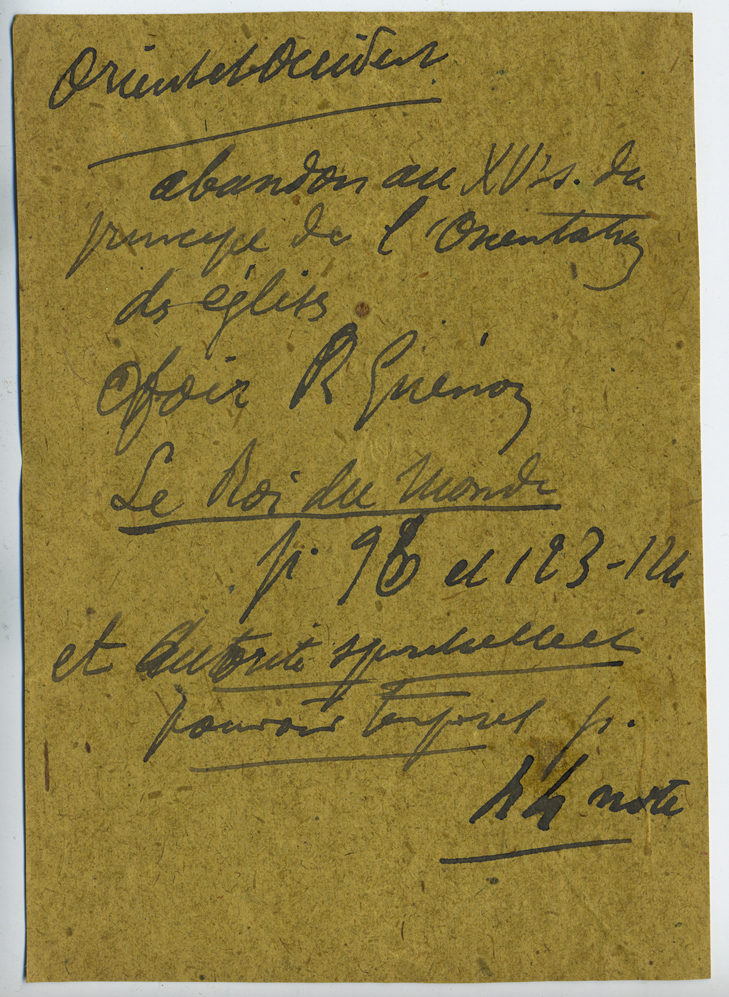 Orient et Occident
abandon au XVe s. du
principe de l'Orientation
des églises
Voir R Guénon
Le Roi du Monde
p. 96 et 123-124
et Autorité spirituelle et
pouvoir temporel p.
note